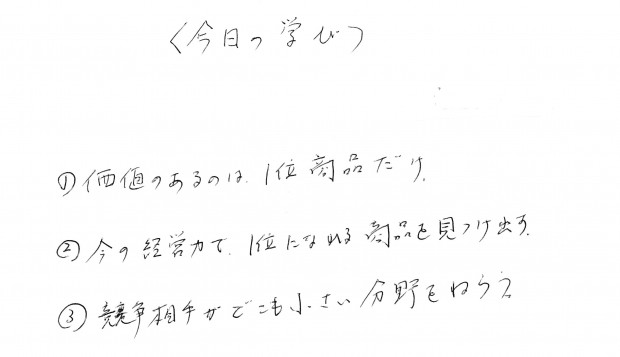 〈今日の学び〉
①価値のあるのは、1位商品だけ。
②今の経営力で、1位になれる商品を見つけ出す。
③競争相手がどこも小さい分野をねらう